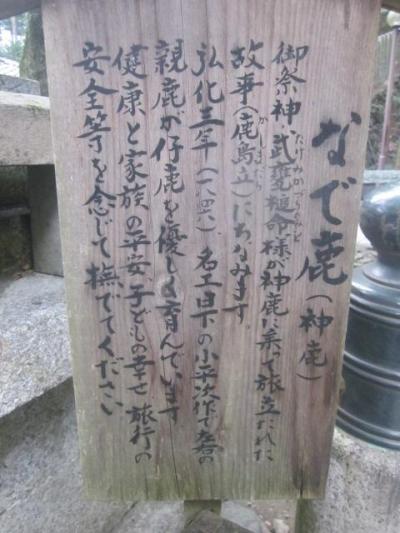 なで鹿(神鹿)
御祭神、武甕槌命様が神鹿に乗って旅立たれた
たけみかづちのみこと
故事(鹿島立)にちなみます。
かしまだち
弘化三年(一八四六)、名工県下の小平次作で左の
親鹿が仔鹿を優しく育んでいます
健康と家族の平安 子どもの幸せ 旅行の
安全等を念じて撫でてください